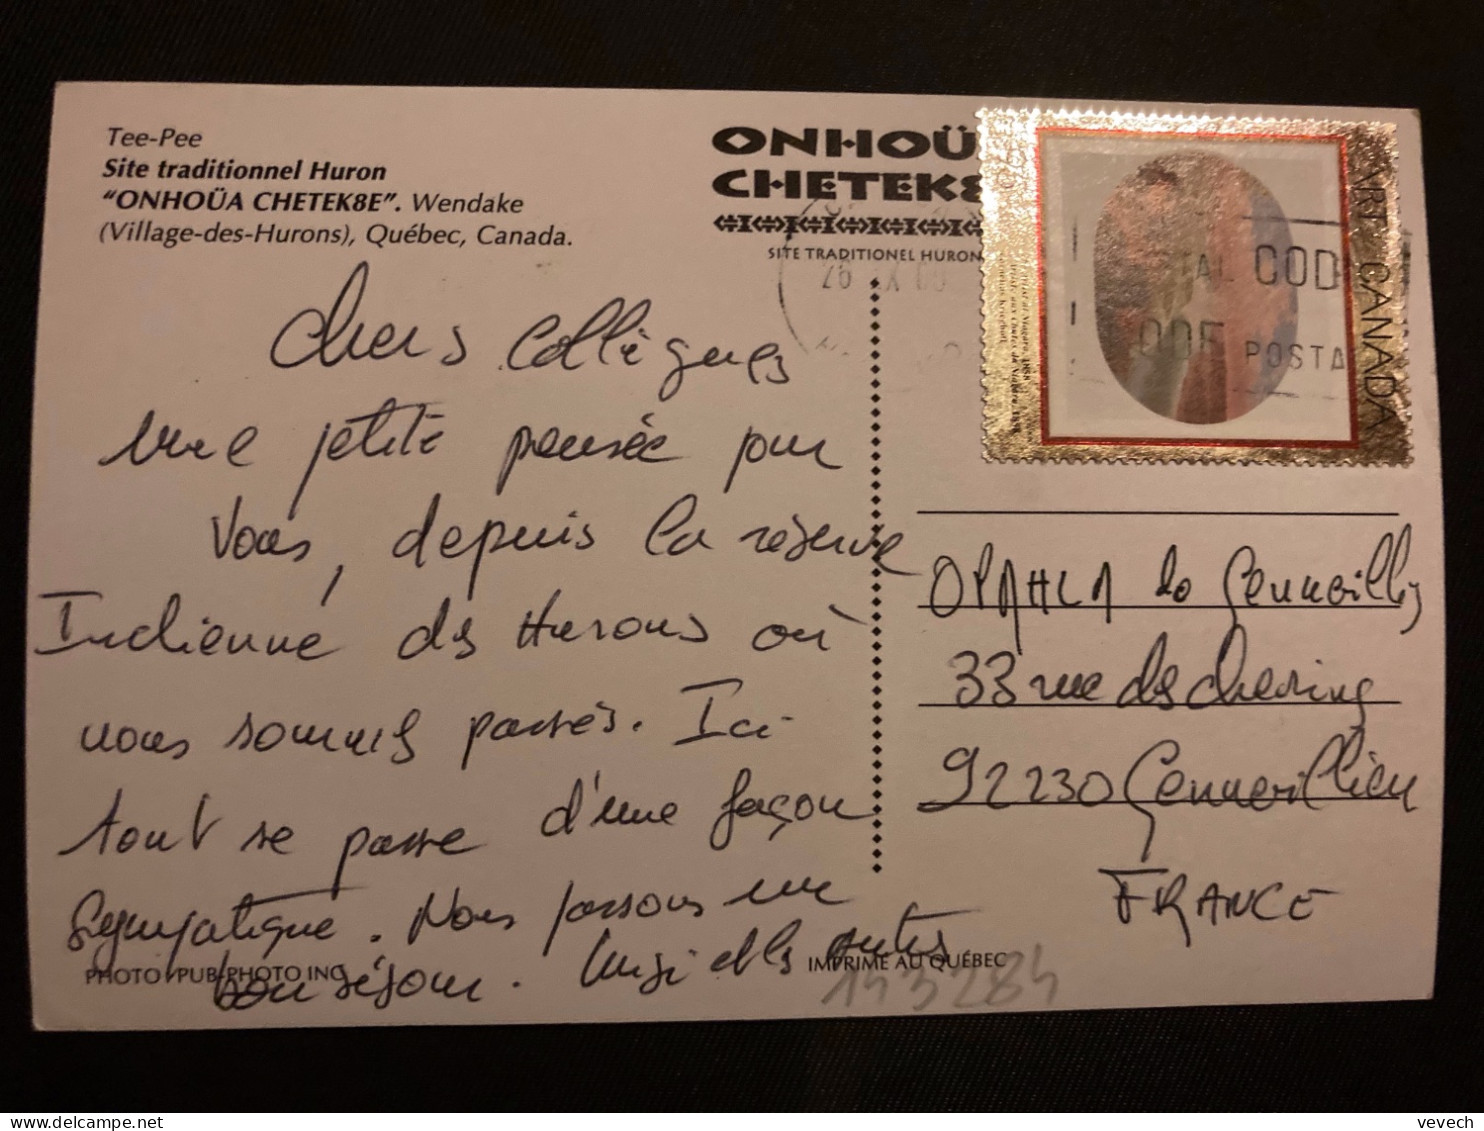 Tee-Pee
Site traditionnel Huron
"ONHOÜA CHETEK8E". Wendake
(Village-des-Hurons), Québec, Canada.
ONHOÜ
CHETEK8
SITE TRADITIONEL HURON
26 X 00
ART CANADA
AL COD
ODE POSTA
Chers Collègues
une petite pensée pour
Vous, depuis la réserve
Indienne des Hurons où
nous sommes passés. Ici
tout se passe d'une façon
Sympatique. Nous passons un
bon séjour. Luigi et les autres
OPAHLA de Gennevilly
33 rue des chevrins
92230 Gennevilliers
FRANCE
PHOTO PUB-PHOTO INC
IMPRIMÉ AU QUÉBEC
153284
vevech